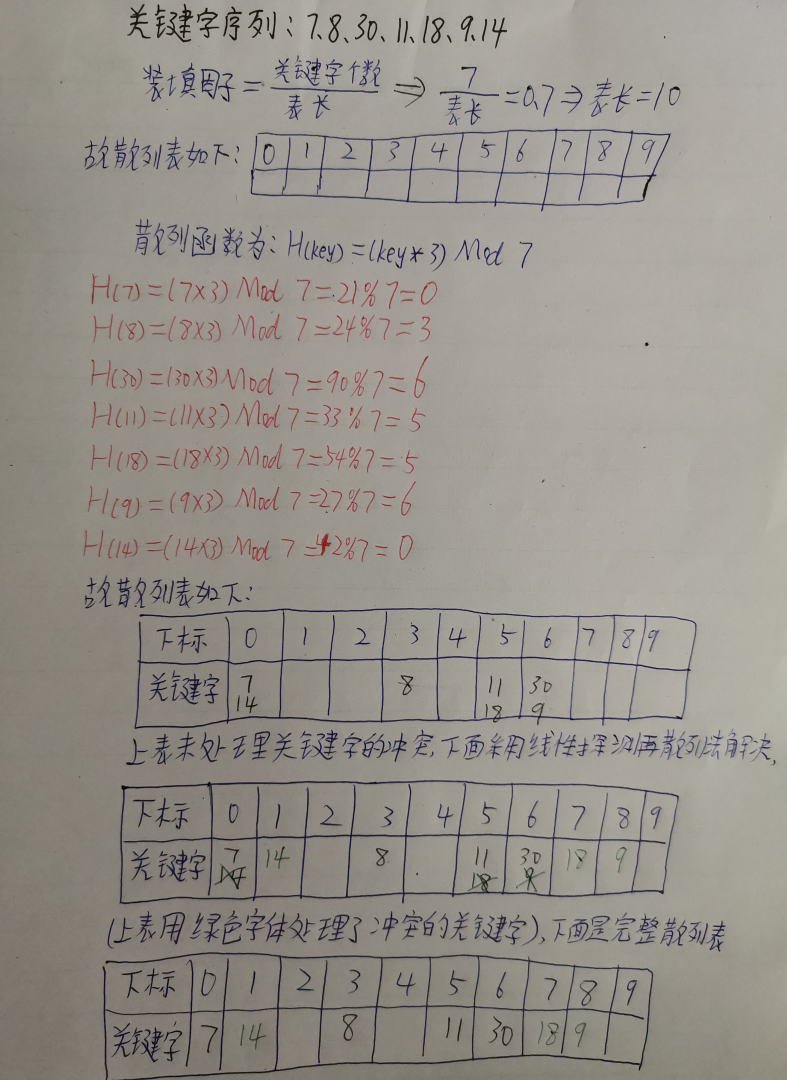 关键字序列: 7、8、30、11、18、9、14
装填因子 = 关键字个数/表长 ⇒ 7/表长 = 0.7 ⇒ 表长 = 10
故散列表如下: 0 1 2 3 4 5 6 7 8 9
散列函数为: H(key) = (key * 3) Mod 7
H(7) = (7×3) Mod 7 = 21%7 = 0
H(8) = (8×3) Mod 7 = 24%7 = 3
H(30) = (30×3) Mod 7 = 90%7 = 6
H(11) = (11×3) Mod 7 = 33%7 = 5
H(18) = (18×3) Mod 7 = 54%7 = 5
H(9) = (9×3) Mod 7 = 27%7 = 6
H(14) = (14×3) Mod 7 = 42%7 = 0
故散列表如下:
下标 0 1 2 3 4 5 6 7 8 9
关键字 7 8 11 30
14 18 9
上表未处理关键字的冲突,下面采用线性探测再散列法解决,
下标 0 1 2 3 4 5 6 7 8 9
关键字 7 14 8 11 30 18 9
14 18 9
(上表用绿色字体处理了冲突的关键字),下面是完整散列表
下标 0 1 2 3 4 5 6 7 8 9
关键字 7 14 8 11 30 18 9